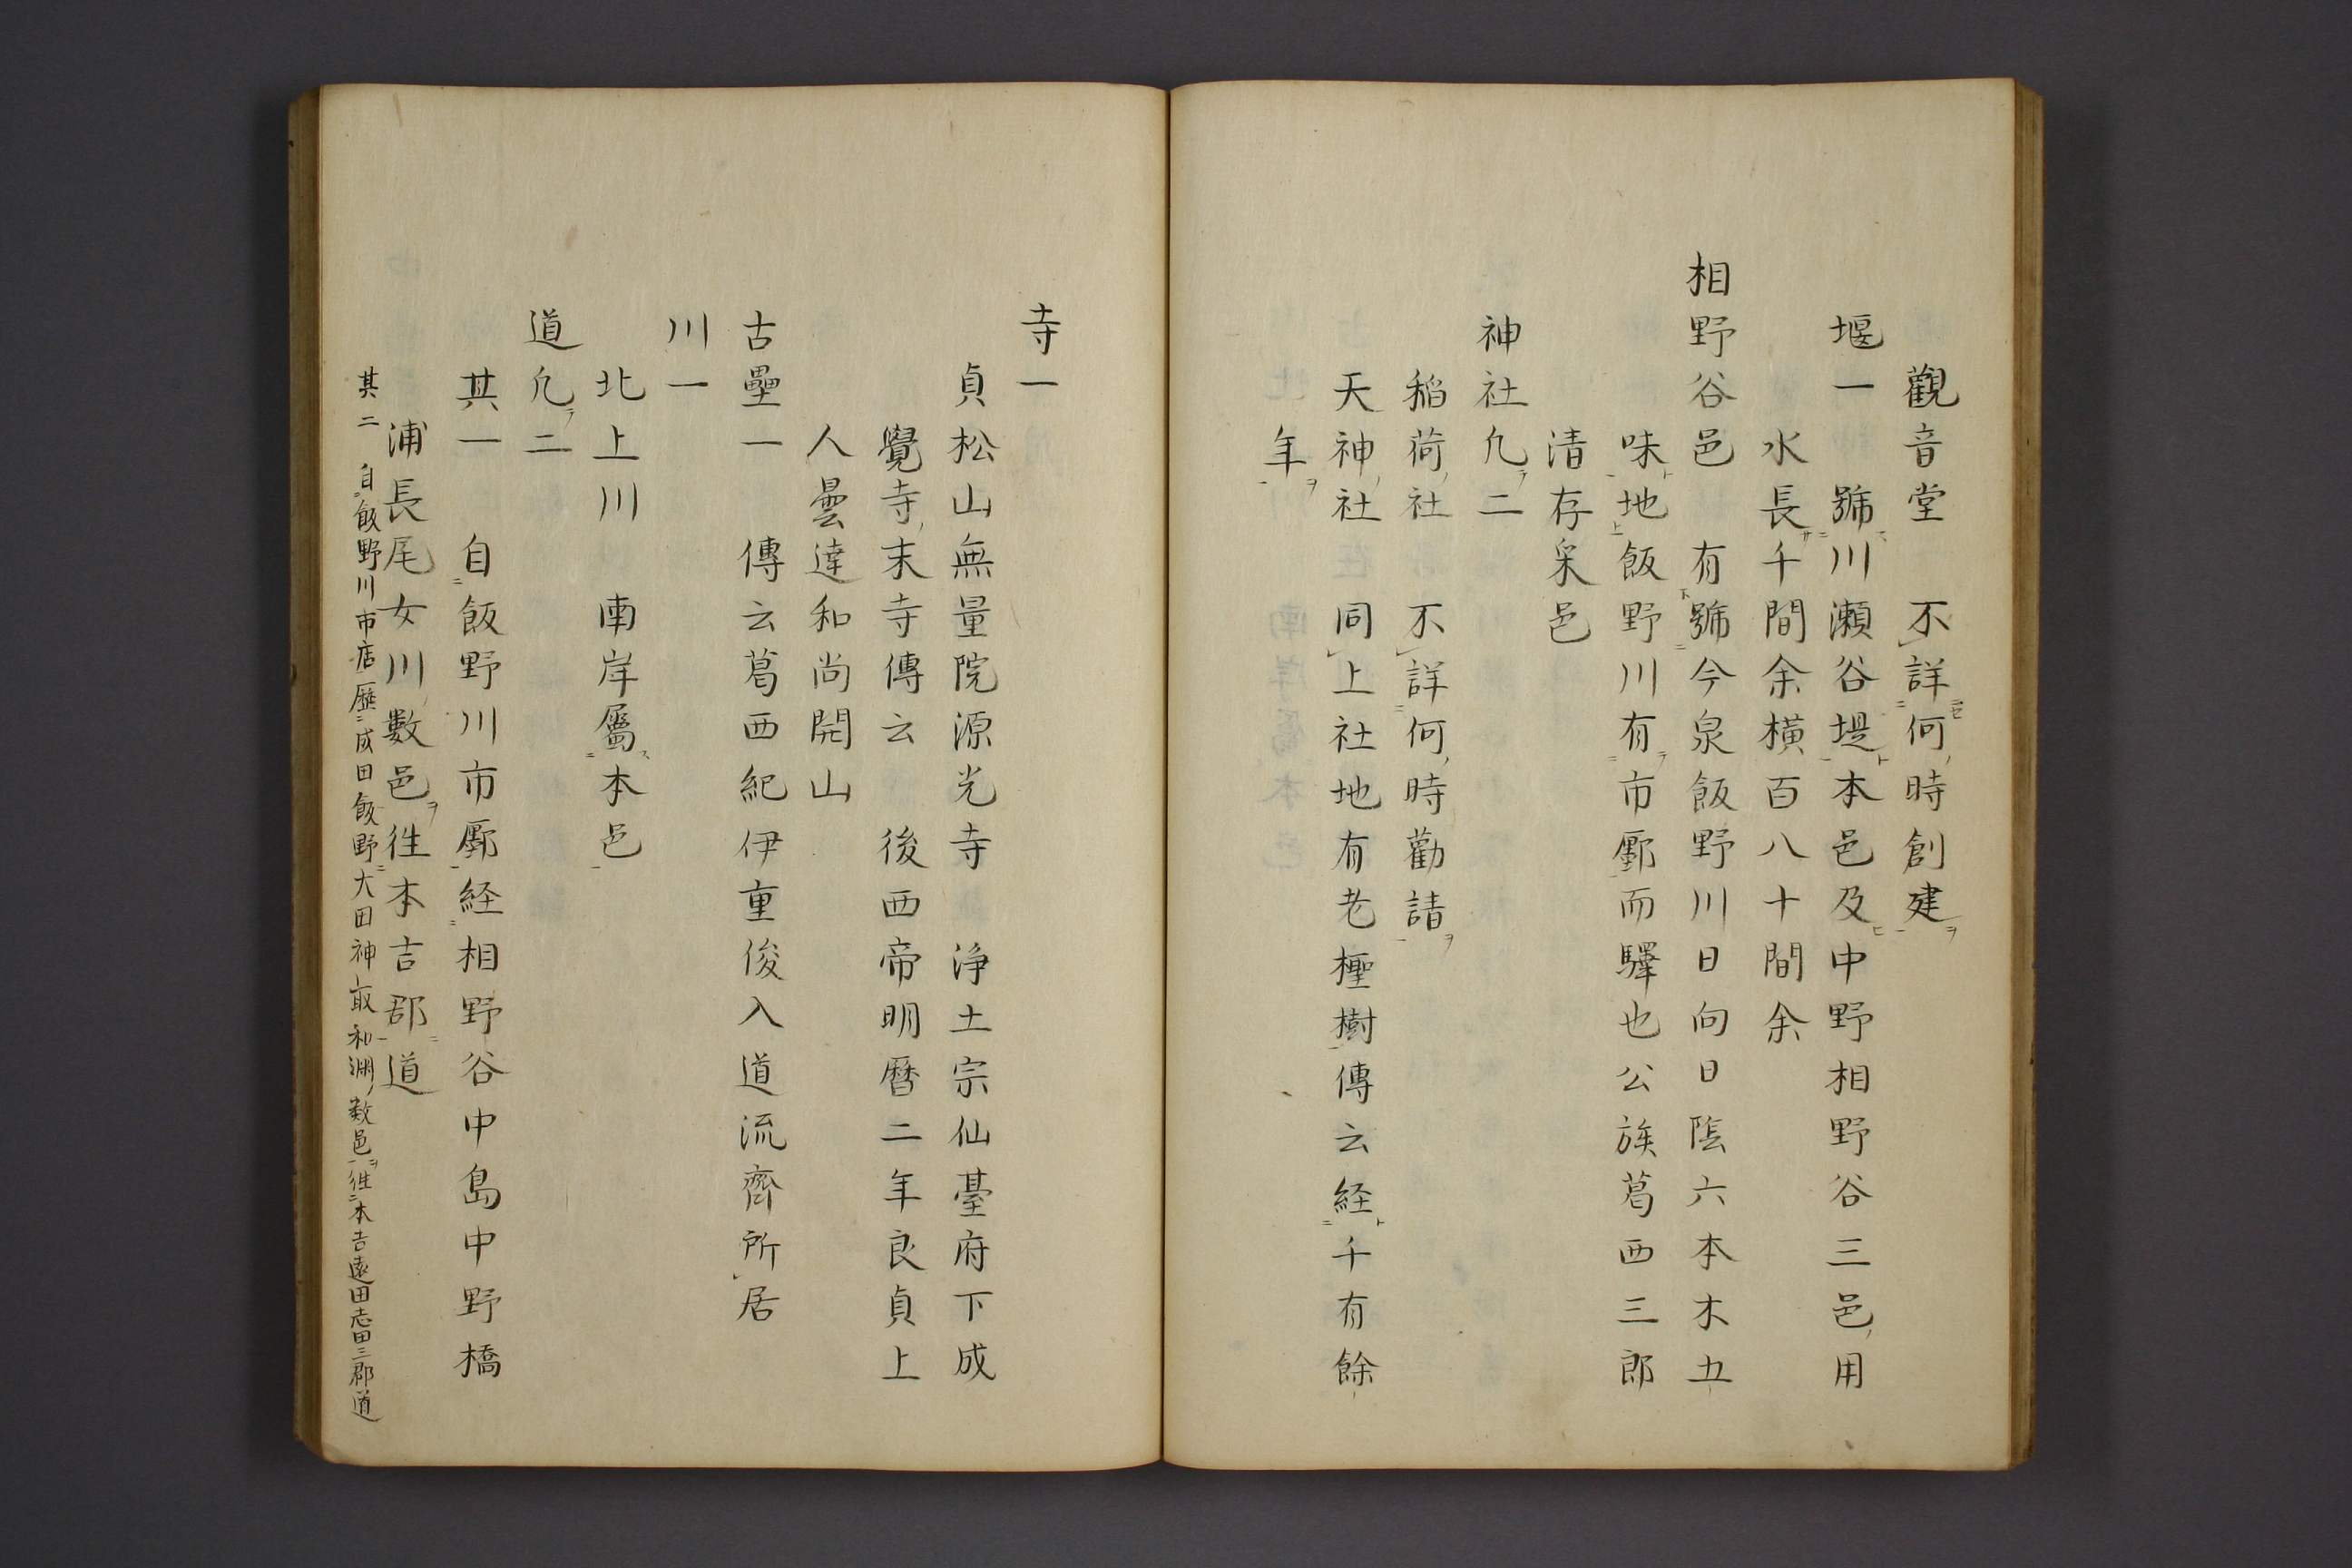 觀音堂　不詳何時創建
堰一　號川瀬谷堤本邑及中野相野谷三邑用
水長千間余横百八十間余
相野谷邑　有號今泉飯野川日向日陰六本木五
味地飯野川有市廛而驛也公族葛西三郎
清存采邑
神社凢二
稲荷社　不詳何時勸請
天神社　同上社地有老樫樹傳云経千有餘
年
寺一
貞松山無量院源光寺　浄土宗仙臺府下成
覺寺末寺傳云　後西帝明暦二年良貞上
人曇達和尚開山
古壘一　傳云葛西紀伊重俊入道流齊所居
川一
北上川　南岸屬本邑
道凢二
其一　自飯野川市廛経相野谷中島中野橋
浦長尾女川數邑徃本吉郡道
其二　自飯野川市店歴成田飯野大田神取和渕数邑徃本吉遠田志田三郡道